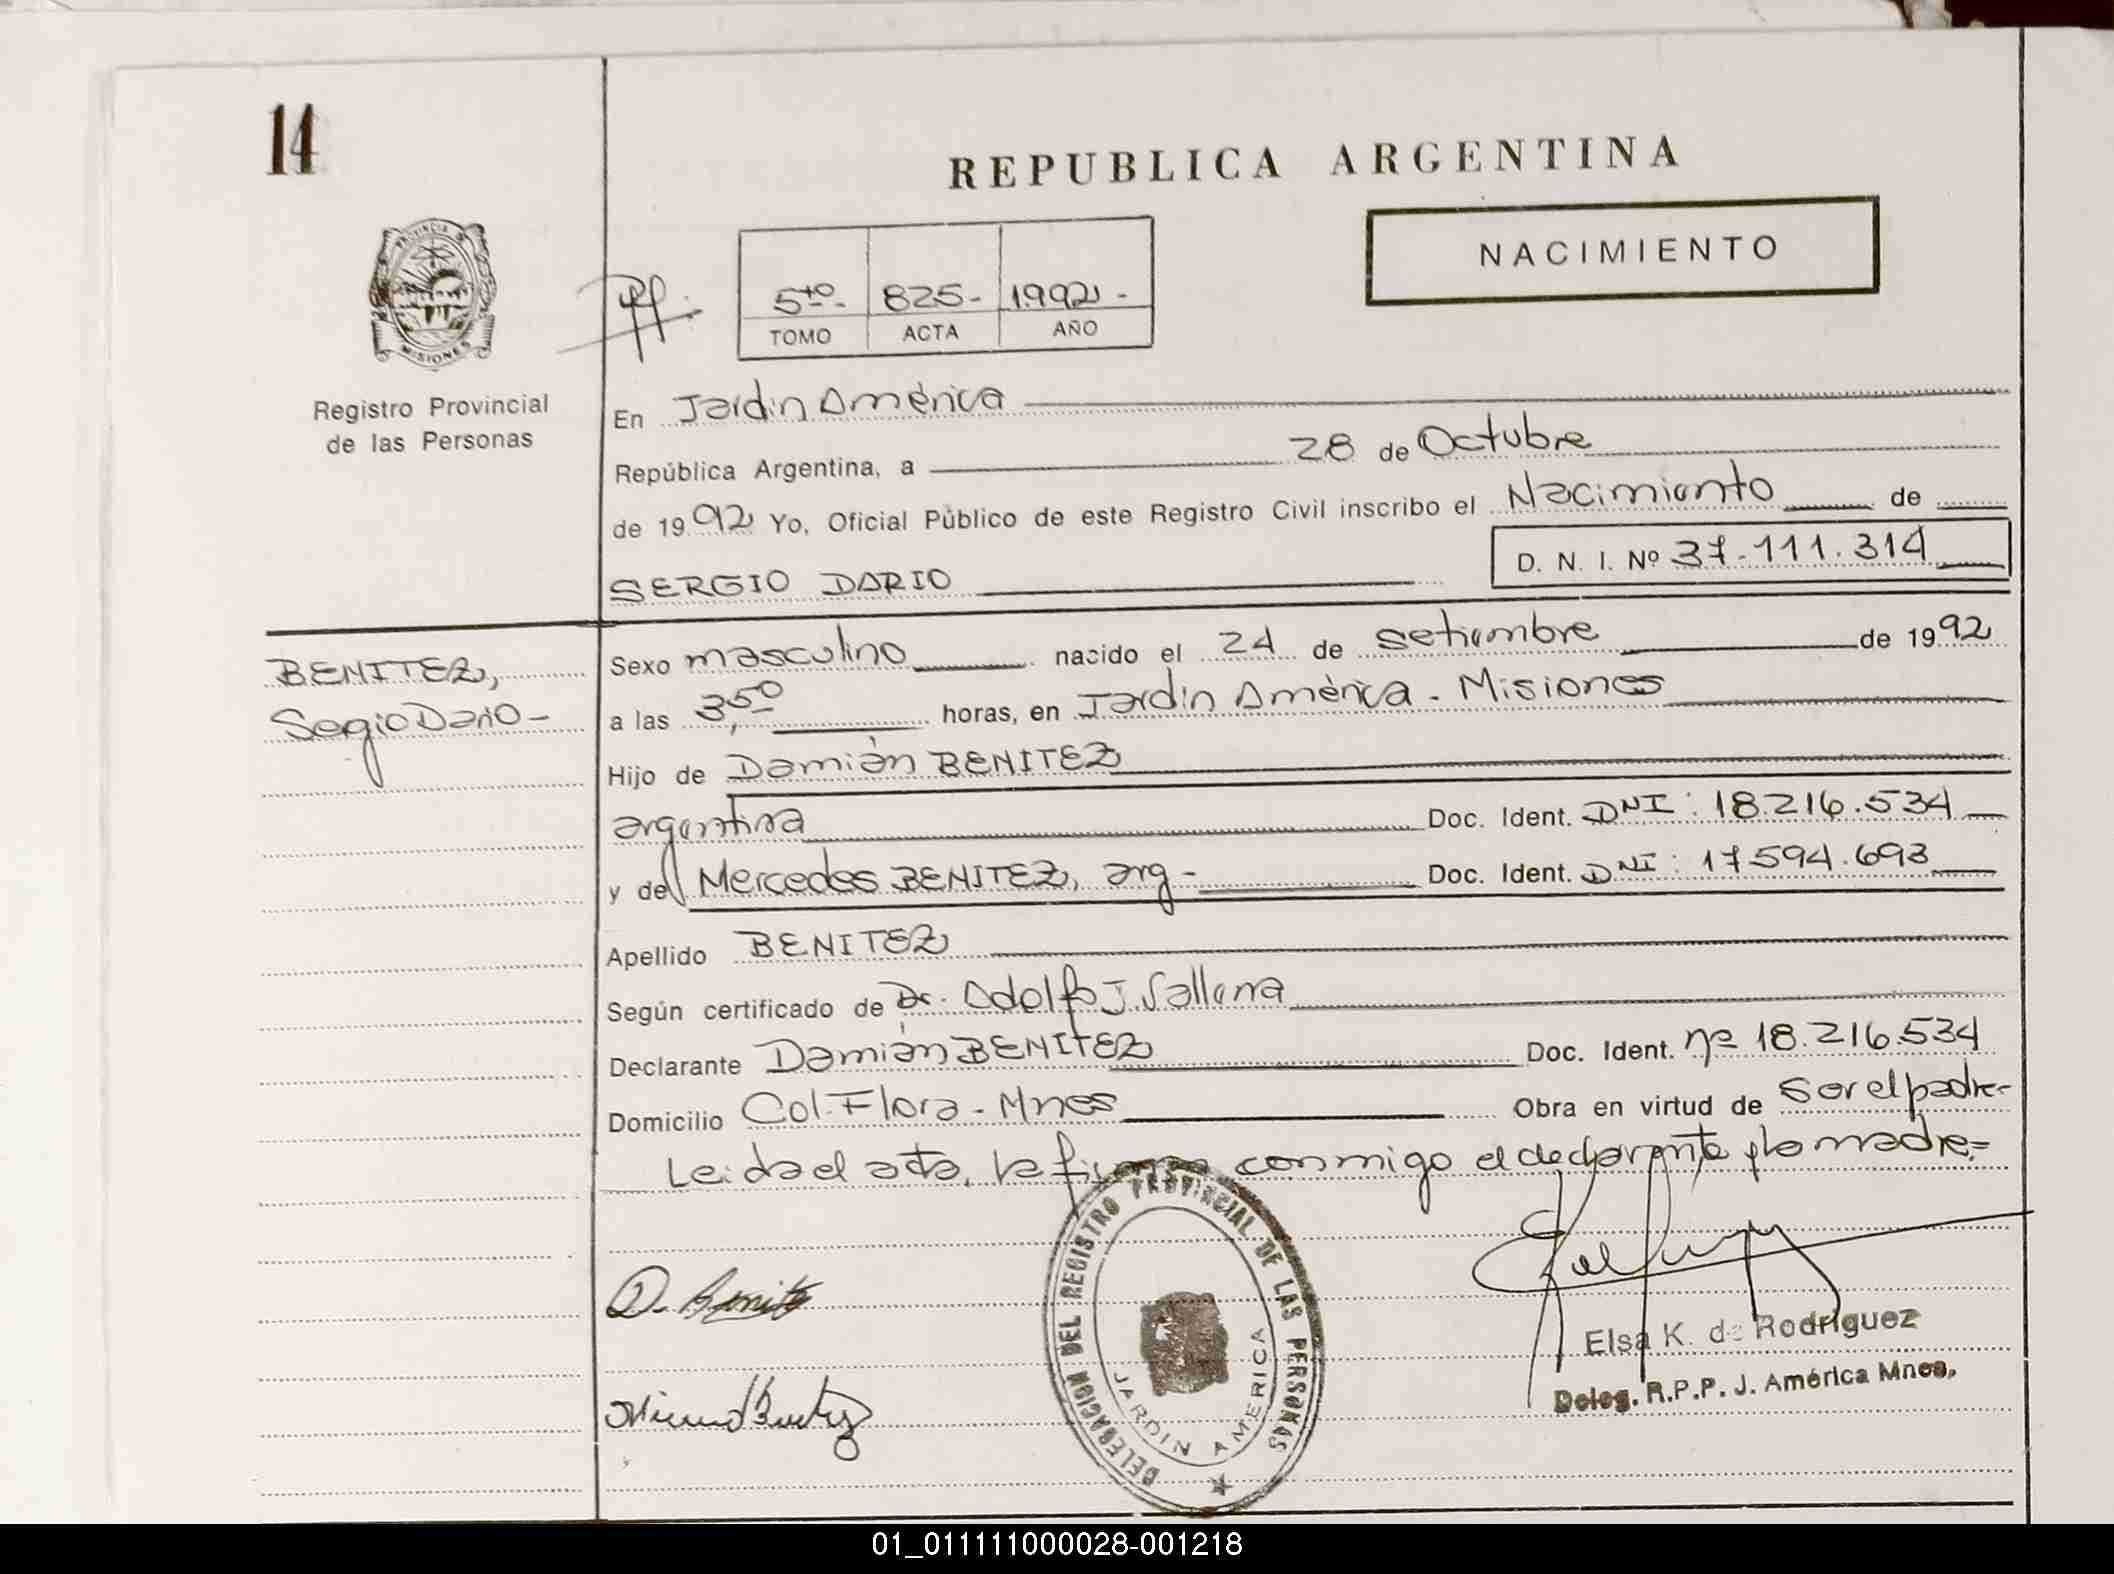 14
REPUBLICA ARGENTINA
NACIMIENTO
PROVINCIA DE
MISIONES
Registro Provincial
de las Personas
5to.- 825- 1992-
TOMO ACTA AÑO
En Jardin América
República Argentina, a 28 de Octubre
de 1992 Yo, Oficial Público de este Registro Civil inscribo el Nacimiento de
D. N. I. Nº 37.111.314
SERGIO DARIO
BENITEZ,
Segio Dario-
Sexo masculino nacido el 24 de setiembre de 1992
a las 3,50 horas, en Jardin América - Misiones
Hijo de Damián BENITEZ
argentina Doc. Ident. DNI: 18.216.534
y de Mercedes BENITEZ, arg- Doc. Ident. DNI: 17.594.693
Apellido BENITEZ
Según certificado de Dr. Adolfo J. Sallena
Declarante Damián BENITEZ Doc. Ident. nº 18.216.534
Domicilio Col. Flora - Mnes Obra en virtud de Ser el padre-
Leida el acta, la firman conmigo el declarante y la madre.=
D. Benitez
DELEGACION DEL REGISTRO PROVINCIAL DE LAS PERSONAS
JARDIN AMERICA
Elsa K. de Rodriguez
Deleg. R.P.P. J. América Mnes,
01_011111000028-001218